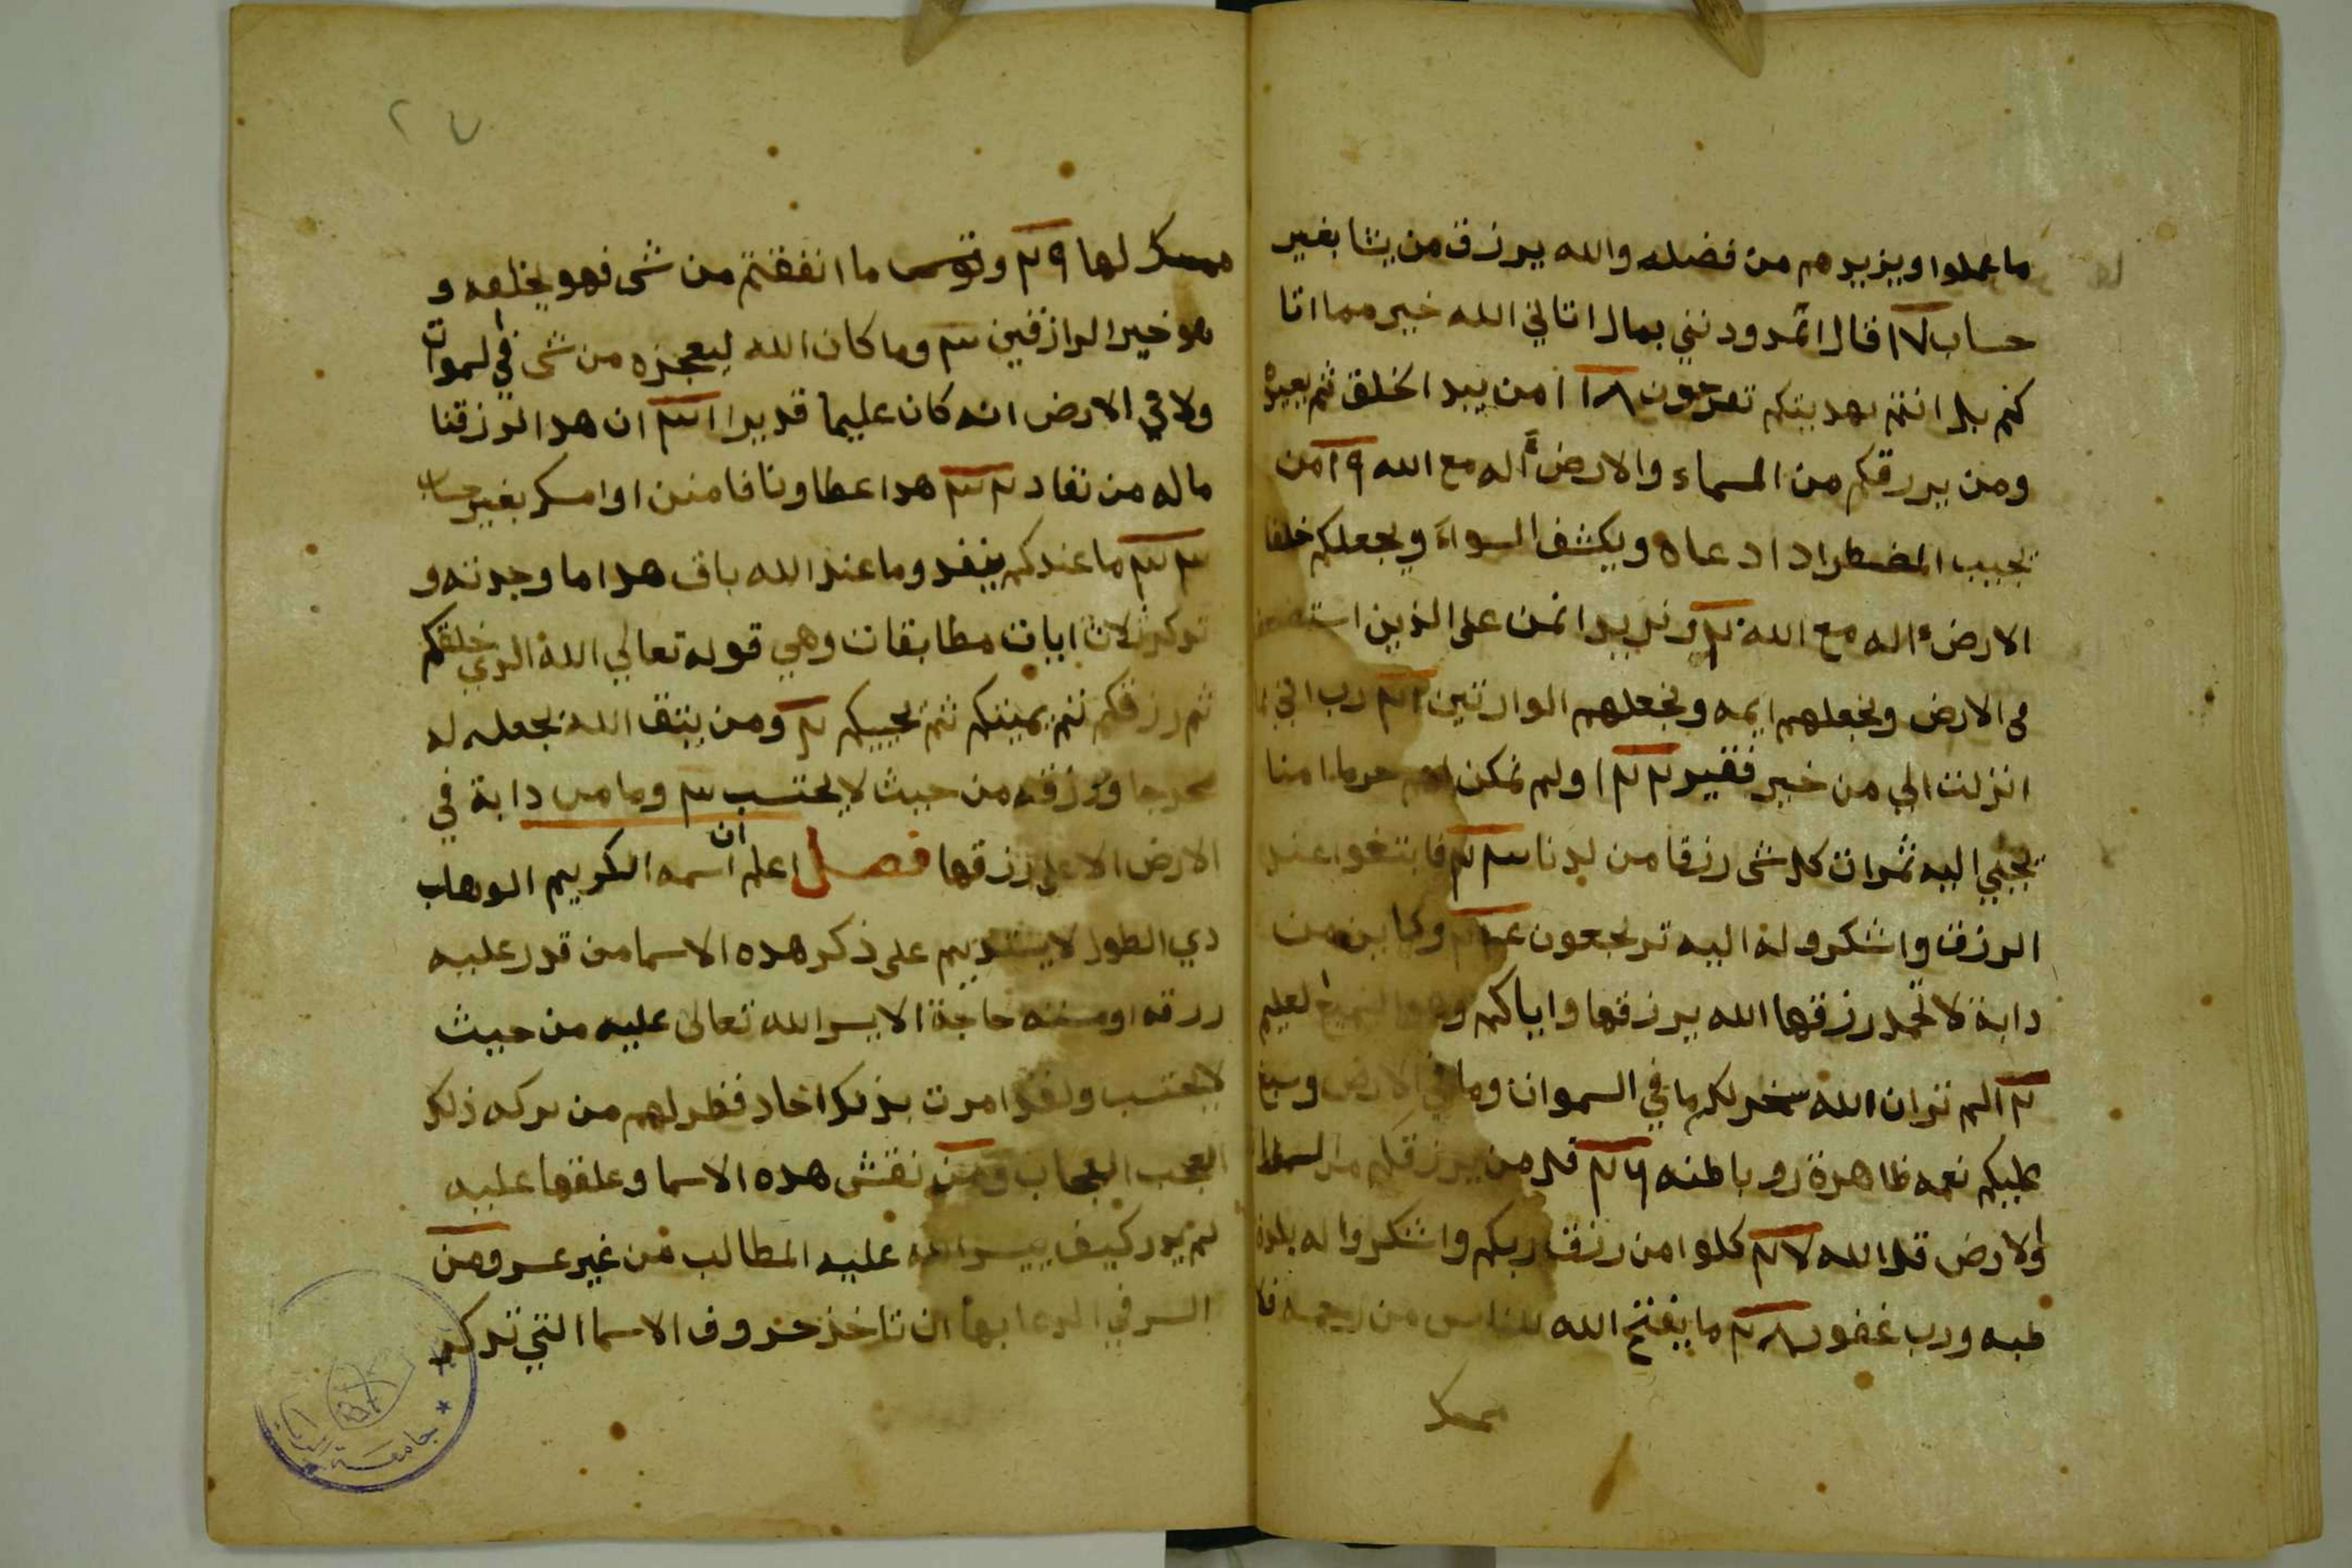 ما عملوا ويزيدهم من فضله والله يرزق من يشا بغير
حساب ١٧ قال اتمدونني بمال اتاني الله خير مما اتا
كم بل انتم بهديتكم تفرحون ١٨ امن يبدا الخلق ثم يعيده
ومن يررقكم من السماء والارض أاله مع الله ١٩ امن
يجيب المضطر ادا دعاه ويكشف السواء ويجعلكم خلفا
الارض ءاله مع الله ٢٠ ونريد ان نمن على الذين استضعفوا
في الارض ونجعلهم ايمه ونجعلهم الوارثين ٢١ رب اني لما
انزلت الي من خير فقير ٢٢ اولم نمكن لهم حرما امنا
تجبي اليه ثمرات كل شى رزقا من لدنا ٢٣ فابتغوا عند
الرزق واشكروا له اليه ترجعون ٢٤ وكاين من
دابة لا تحمل رزقها الله يرزقها واياكم وهو السميع العليم
٢٥ الم تران الله سخر لكم ما في السموات وما في الارض وسبغ
عليكم نعمه ظاهرة وباطنه ٢٦ قل من يرزقكم من السما
والارض قل الله ٢٧ كلوا من رزق ربكم واشكروا له بلدة
طبه ورب غفور ٢٨ ما يفتح الله للناس من رحمه فلا
ممسك
٢٧
ممسك لها ٢٩ وما انفقتم من شى فهو يخلفه و
هو خير الرازقين ٣٠ وما كان الله ليعجزه من شى في السموات
ولا في الارض انه كان عليما قديرا ٣١ ان هدا لرزقنا
ماله من نفاد ٣٢ هدا عطاونا فامنن او امسك بغير حساب
٣٣ ما عندكم ينفد وما عند الله باق هدا ما وجدته و
تدكر ثلاث ايات مطابقات وهي قوله تعالي الله الدي خلقكم
ثم رزقكم ثم يميتكم ثم يحييكم ٢ ومن يتق الله يجعل له
مخرجا ويرزقه من حيث لا يحتسب ٣ وما من دابة في
الارض الا على رزقها فصل اعلم ان اسمه الكريم الوهاب
دي الطول لا يستديم على ذكر هده الاسما من قدر عليه
ررقه او مسته حاجة الا يسر الله تعالى عليه من حيث
لا يحتسب ولقد امرت بذلك اخاد فظهر لهم من بركه ذلك
العجب العجاب ومن نقش هده الاسما وعلقها عليه
لم يدر كيف ييسر الله عليه المطالب من غير عسر ومن
السر في الدعا بها ان تاخذ حروف الاسما التي تدكر
جامعة